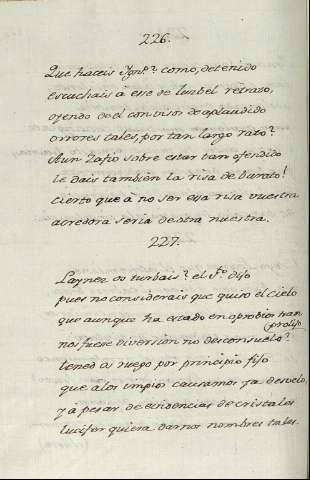 226.
Que haceis Ygn.º? como, detenido
escuchais á esse de luzbel retrato,
oyendo os el con visor de aplaudido
errores tales, por tan largo rato?
Aun Zafio sobre estar tan ofendido
le dais tambien la risa de barato!
cierto que á no ser esa risa vuestra
acredora seria de otra nuestra.
227.
Laynez os turbais? el S.to dijo
pues no considerais que quiso el cielo
que aunque ha estado en oprobios tan
prolijo
nos fuese diversion no desconsuelo?
tened os ruego por principio fijo
que a los impios causamos ya desvelo,
y á pesar de evidencias de cristales
lucifer quiera darnos nombres tales.